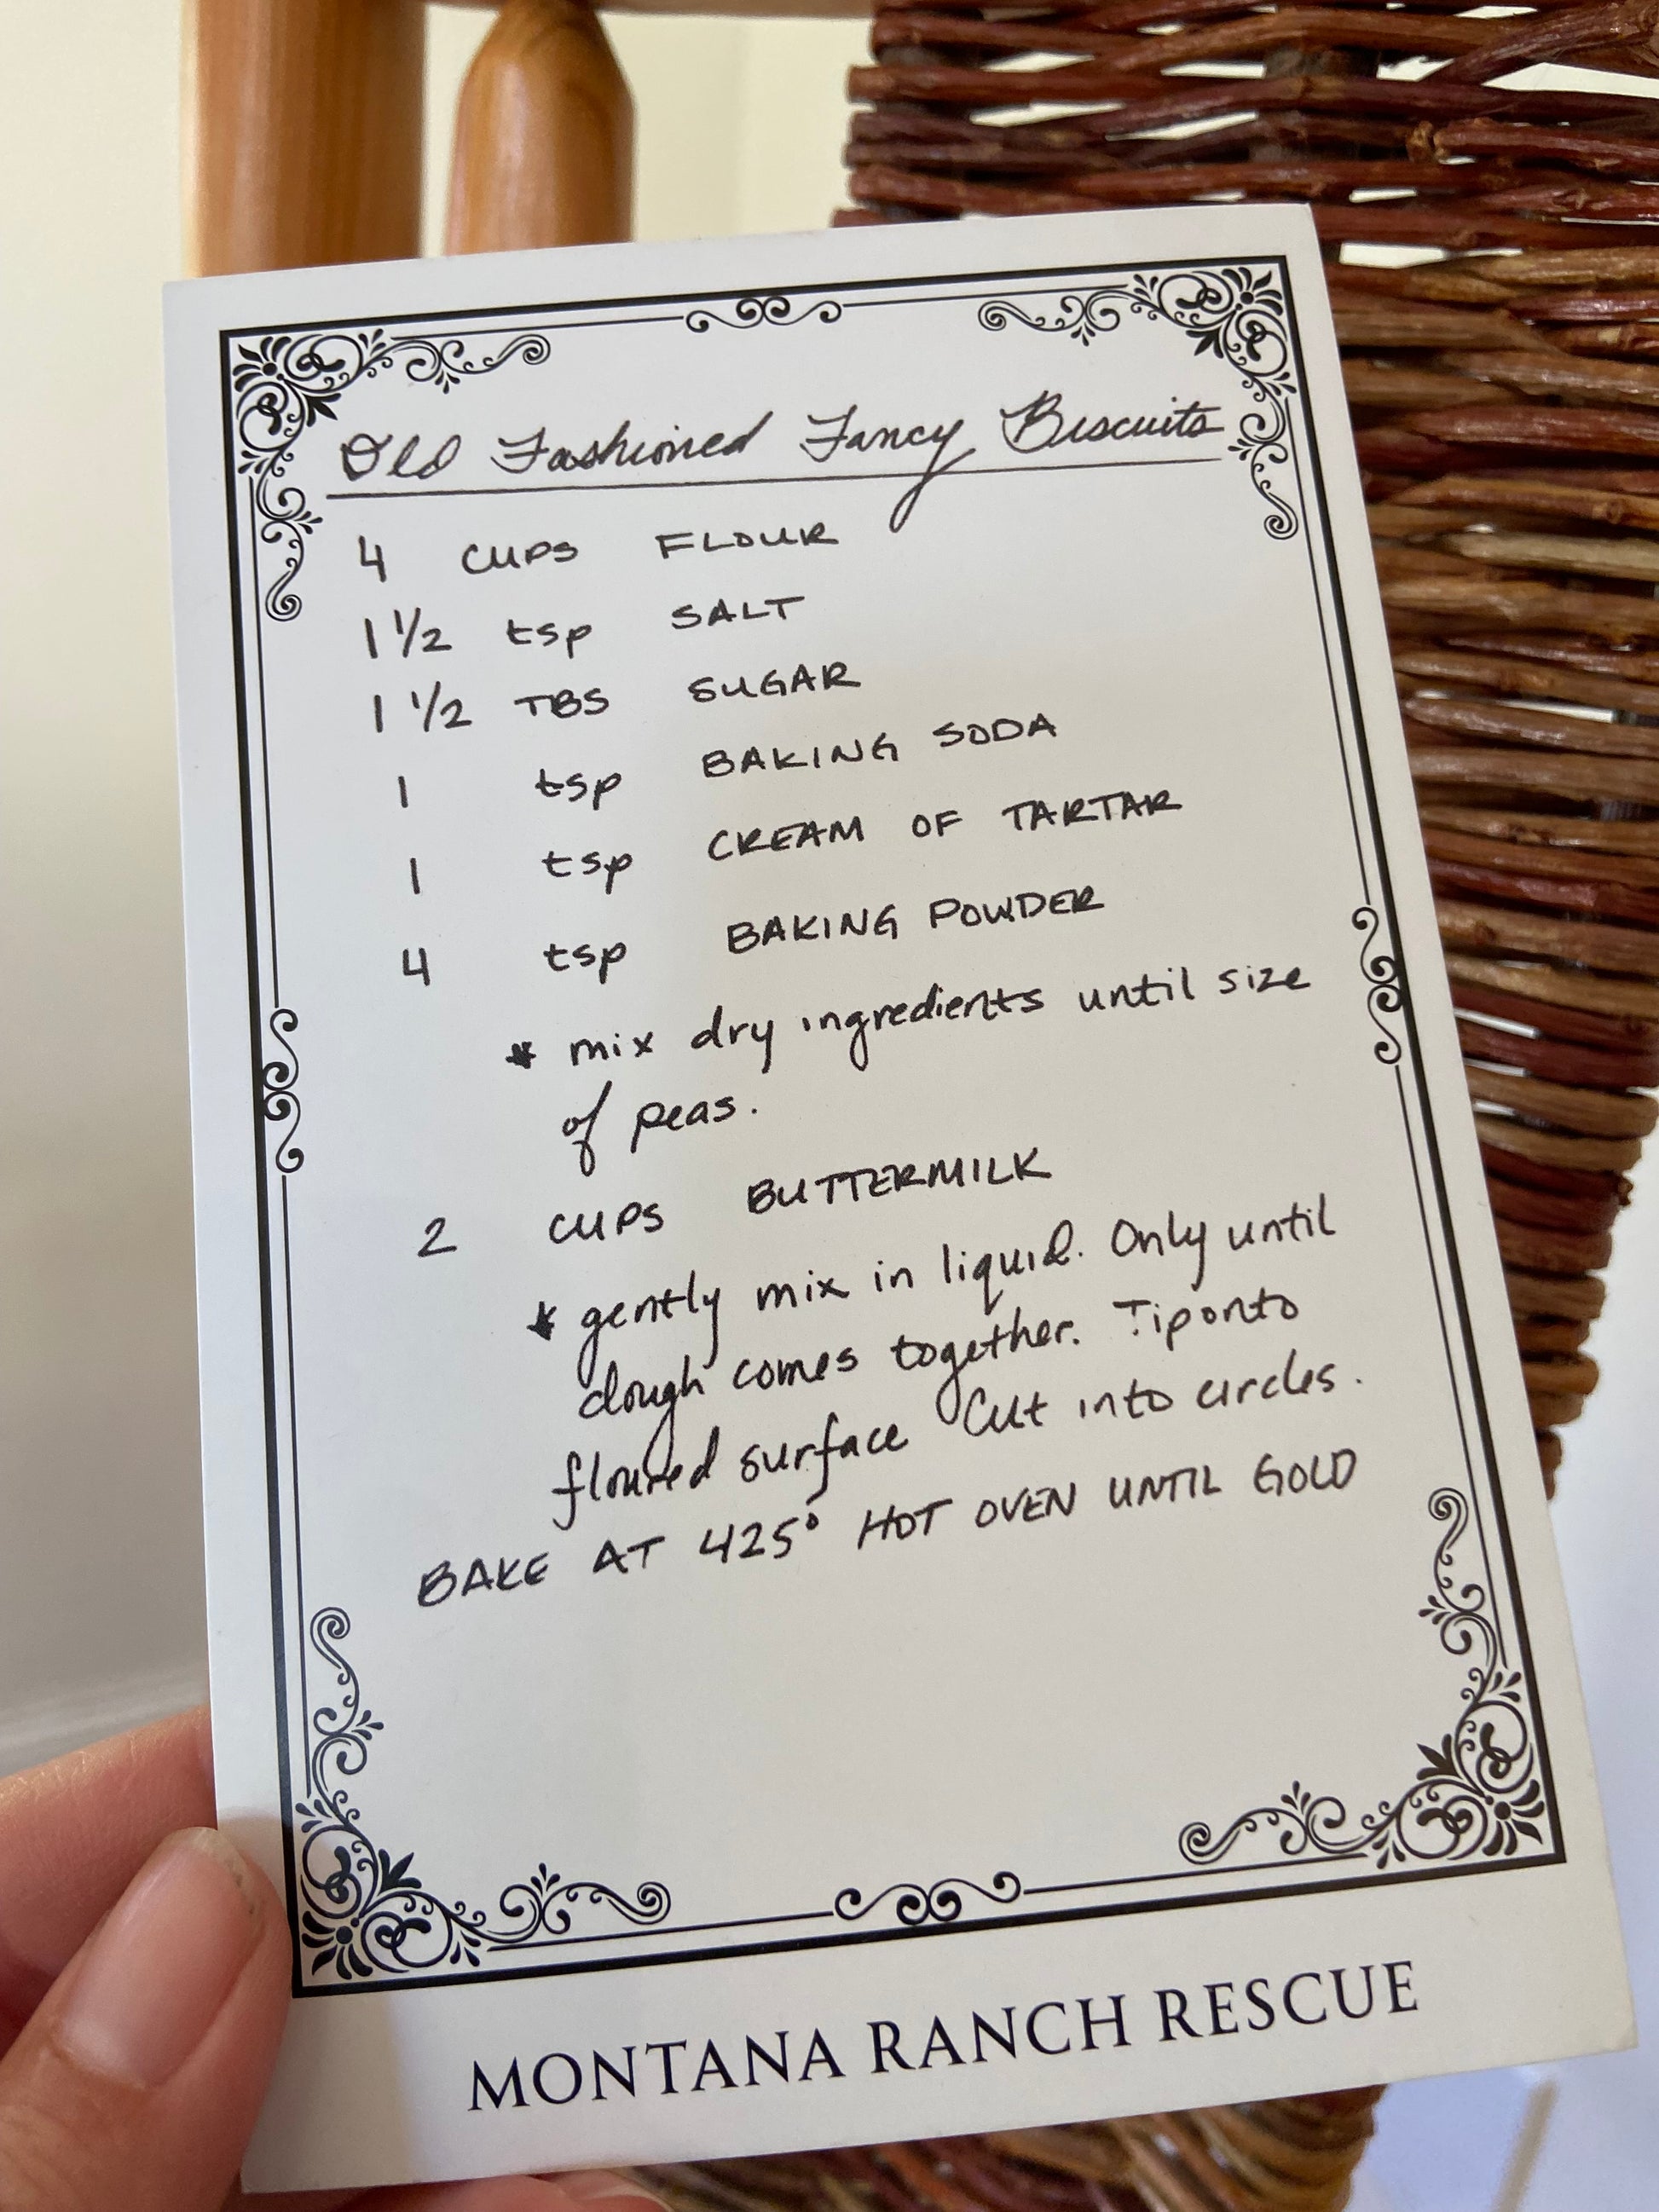 Old Fashioned Fancy Biscuits
4 CUPS FLOUR
1 1/2 tsp SALT
1 1/2 TBS SUGAR
1 tsp BAKING SODA
1 tsp CREAM OF TARTAR
4 tsp BAKING POWDER
* mix dry ingredients until size
of peas.
2 CUPS BUTTERMILK
* gently mix in liquid. Only until
dough comes together. Tip onto
floured surface Cut into circles.
BAKE AT 425° HOT OVEN UNTIL GOLD
MONTANA RANCH RESCUE